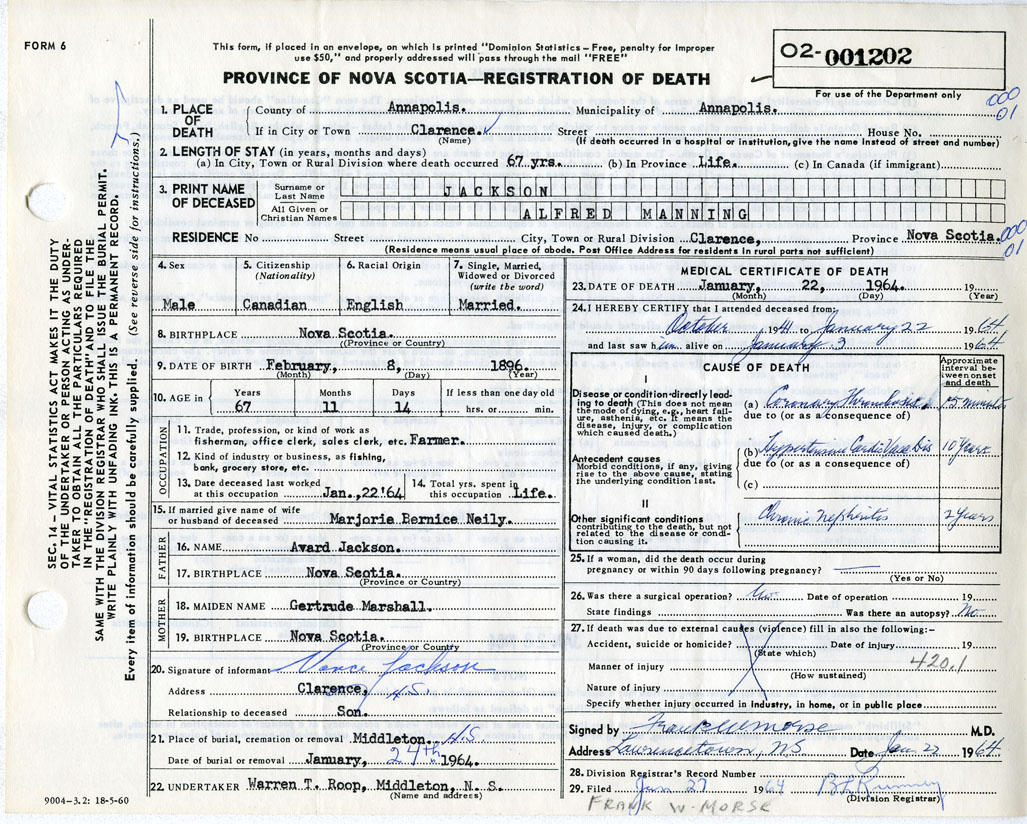 FORM 6
This form, if placed in an envelope, on which is printed "Dominion Statistics – Free, penalty for improper
use $50," and properly addressed will pass through the mail "FREE"
PROVINCE OF NOVA SCOTIA—REGISTRATION OF DEATH
02-001202
For use of the Department only
000
01
SEC. 14 – VITAL STATISTICS ACT MAKES IT THE DUTY
OF THE UNDERTAKER OR PERSON ACTING AS UNDER-
TAKER TO OBTAIN ALL THE PARTICULARS REQUIRED
IN THE "REGISTRATION OF DEATH" AND TO FILE THE
SAME WITH THE DIVISION REGISTRAR WHO SHALL ISSUE THE BURIAL PERMIT.
WRITE PLAINLY WITH UNFADING INK. THIS IS A PERMANENT RECORD.
Every item of information should be carefully supplied. (See reverse side for instructions.)
1. PLACE OF DEATH County of Annapolis. Municipality of Annapolis.
If in City or Town Clarence. Street House No.
(Name) (If death occurred in a hospital or institution, give the name instead of street and number)
2. LENGTH OF STAY (in years, months and days)
(a) In City, Town or Rural Division where death occurred 67 yrs. (b) In Province Life. (c) In Canada (if immigrant)
3. PRINT NAME OF DECEASED Surname or Last Name JACKSON
All Given or Christian Names ALFRED MANNING
RESIDENCE No Street City, Town or Rural Division Clarence, Province Nova Scotia.
000
01
(Residence means usual place of abode. Post Office Address for residents in rural parts not sufficient)
4. Sex Male
5. Citizenship (Nationality) Canadian
6. Racial Origin English
7. Single, Married, Widowed or Divorced (write the word) Married.
8. BIRTHPLACE Nova Scotia.
(Province or Country)
9. DATE OF BIRTH February, 8, 1896.
(Month) (Day) (Year)
10. AGE in Years 67 Months 11 Days 14 If less than one day old hrs. or min.
OCCUPATION
11. Trade, profession, or kind of work as
fisherman, office clerk, sales clerk, etc. Farmer.
12. Kind of industry or business, as fishing,
bank, grocery store, etc.
13. Date deceased last worked at this occupation Jan.,22'64
14. Total yrs. spent in this occupation Life.
15. If married give name of wife
or husband of deceased Marjorie Bernice Neily.
FATHER
16. NAME Avard Jackson.
17. BIRTHPLACE Nova Scotia.
(Province or Country)
MOTHER
18. MAIDEN NAME Gertrude Marshall.
19. BIRTHPLACE Nova Scotia.
(Province or Country
20. Signature of informant Vance Jackson
Address Clarence, N.S.
Relationship to deceased Son.
21. Place of burial, cremation or removal Middleton. N.S.
Date of burial or removal January, 24th 1964.
22. UNDERTAKER Warren T. Roop, Middleton, N. S.
(Name and address)
9004–3.2: 18-5-60
MEDICAL CERTIFICATE OF DEATH
23. DATE OF DEATH January, 22, 1964. 19
(Month) (Day) (Year)
24. I HEREBY CERTIFY that I attended deceased from
October 1941 to January 22 1964
and last saw him alive on January 3 1964
CAUSE OF DEATH
Approximate interval between onset and death
I
Disease or condition directly lead-
ing to death (This does not mean
the mode of dying, e.g., heart fail-
ure, asthenia, etc. it means the
disease, injury, or complication
which caused death.)
(a) Coronary Thrombosis 15 minutes
due to (or as a consequence of)
Antecedent causes
Morbid conditions, if any, giving
rise to the above cause, stating
the underlying condition last.
(b) Hypertensive Cardio Vasc Dis 10 Years
due to (or as a consequence of)
(c)
II
Other significant conditions
contributing to the death, but not
related to the disease or condi-
tion causing it.
Chronic Nephritis 2 Years
25. If a woman, did the death occur during
pregnancy or within 90 days following pregnancy? —
(Yes or No)
26. Was there a surgical operation? No. Date of operation 19
State findings Was there an autopsy? No.
27. If death was due to external causes (violence) fill in also the following:–
Accident, suicide or homicide? Date of injury 19
(State which)
420.1
Manner of injury
(How sustained)
Nature of injury
Specify whether injury occurred in industry, in home, or in public place
Signed by Frank W Morse M.D.
Address Lawrencetown, N.S Date Jan 22 1964
28. Division Registrar's Record Number
29. Filed Jan 27 1964
(Division Registrar)
FRANK W-MORSE